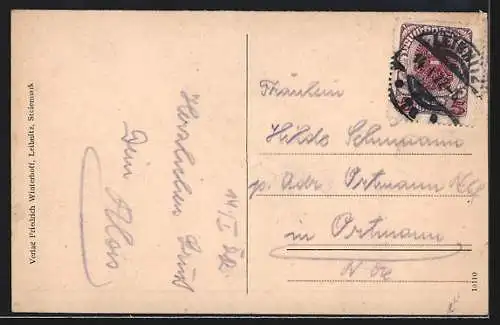 Verlag Friedrich Winterhoff, Leibnitz, Steiermark
Herzlichen Gruß
Dein Alois
14/I 22.
Fräulein
Hilde Schumann
p. Adr. Ortmann
in Ortmann
N. Öe
10110